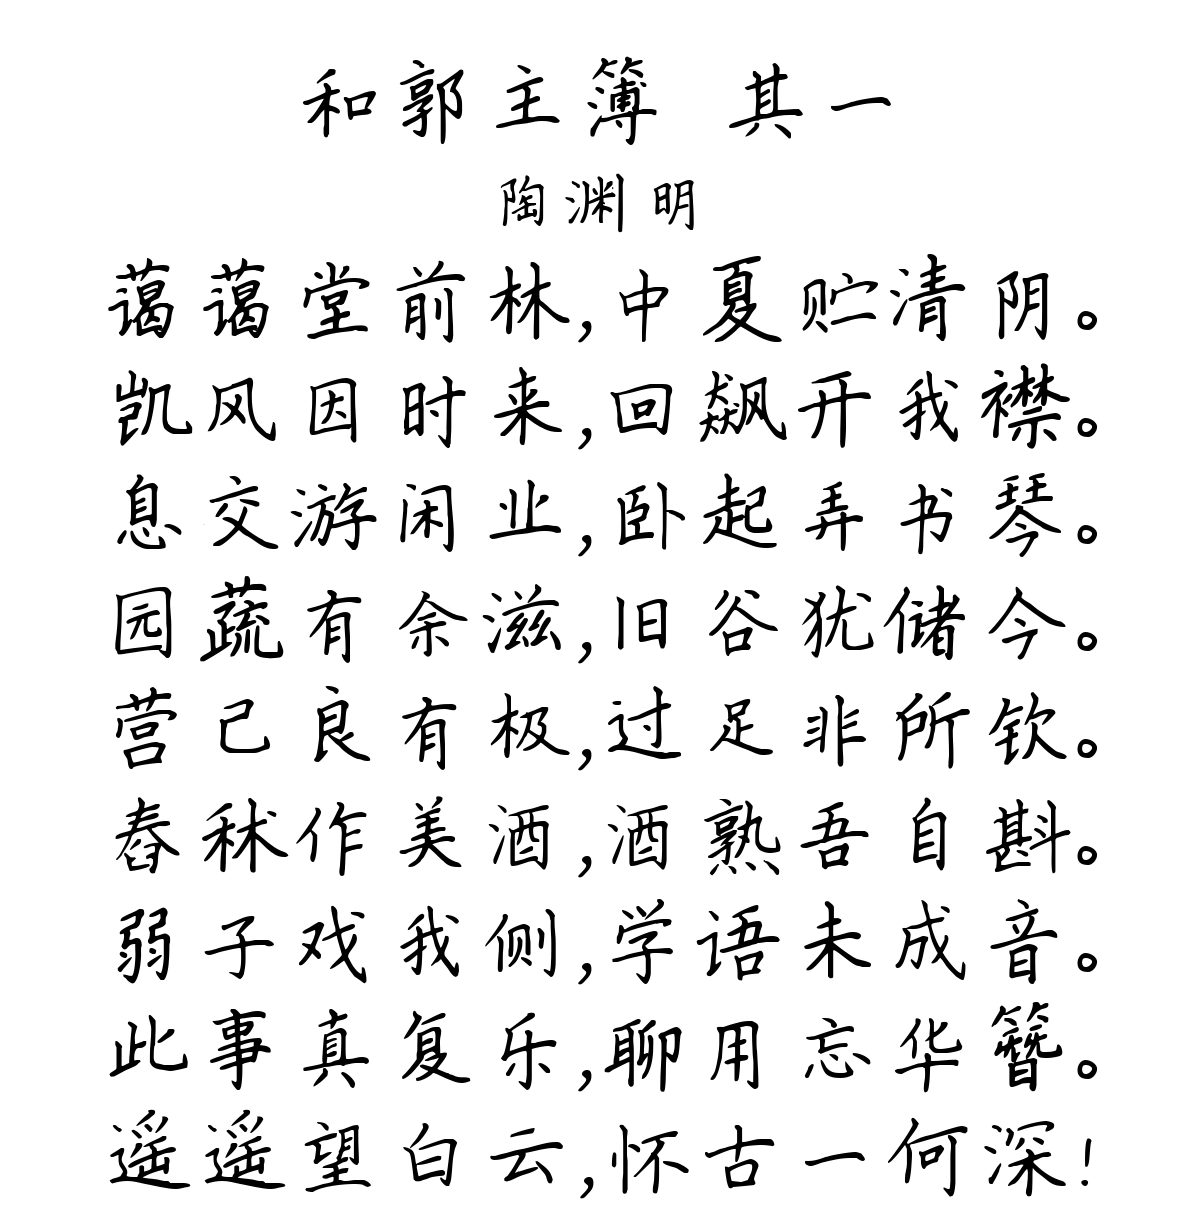 和郭主簿 其一
陶渊明
蔼蔼堂前林,中夏贮清阴。
凯风因时来,回飙开我襟。
息交游闲业,卧起弄书琴。
园蔬有余滋,旧谷犹储今。
营己良有极,过足非所钦。
舂秫作美酒,酒熟吾自斟。
弱子戏我侧,学语未成音。
此事真复乐,聊用忘华簪。
遥遥望白云,怀古一何深!